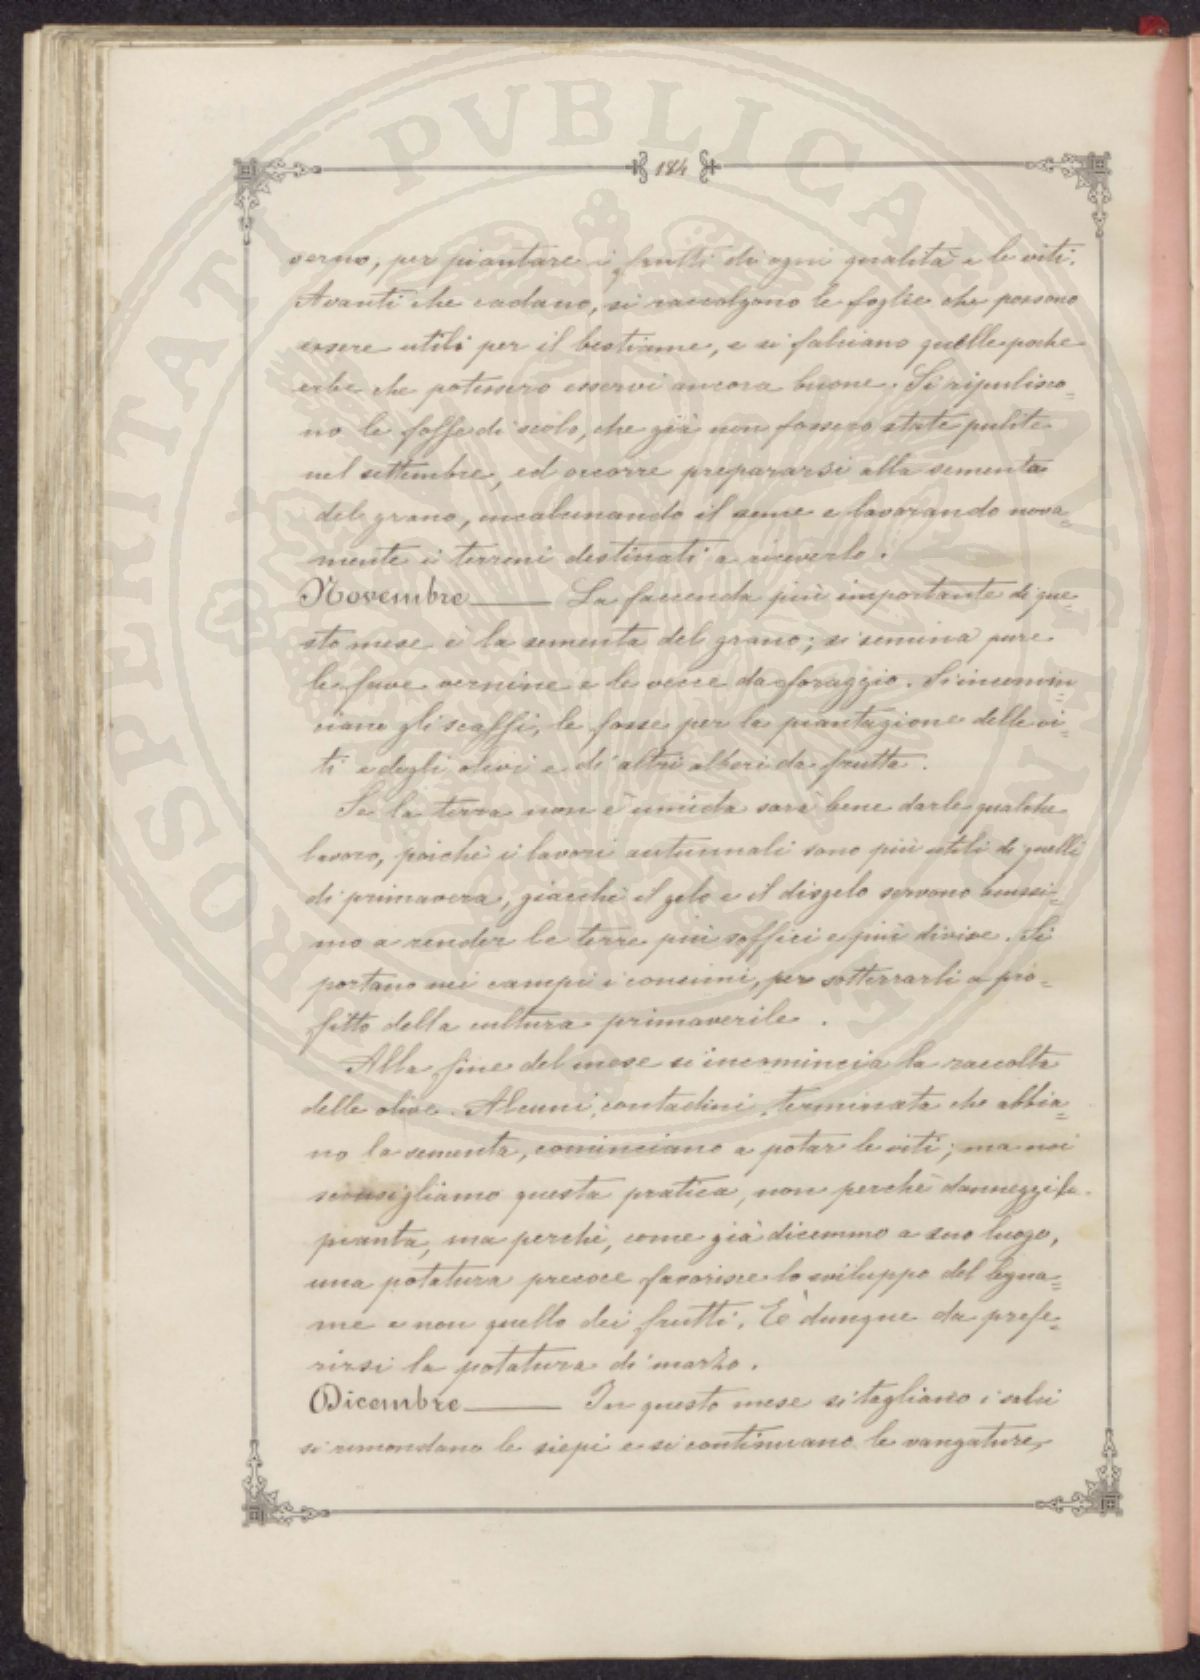 184
verno, per piantare i frutti di ogni qualità e le viti.
Avanti che cadano, si raccolgono le foglie che possono
essere utili per il bestiame, e si falciano quelle poche
erbe che potessero esservi ancora buone. Si ripulisco=
no le fosse di scolo, che già non fossero state pulite
nel settembre, ed occorre prepararsi alla sementa
del grano, incalcinando il seme e lavorando nova=
mente i terreni destinati a riceverlo.
Novembre — La faccenda più importante di que=
sto mese è la sementa del grano; si semina pure
le fave vernine e le vecce da foraggio. Si incomin=
ciano gli scassi, le fosse per la piantagione delle vi=
ti e degli olivi e di altri alberi da frutta.
Se la terra non è umida sarà bene darle qualche
lavoro, poichè i lavori autunnali sono più utili di quelli
di primavera, giacchè il gelo e il disgelo servono benissi=
mo a render le terre più soffici e più divise. Si
portano nei campi i concimi, per sotterrarli a pro=
fitto della cultura primaverile.
Alla fine del mese si incomincia la raccolta
delle olive. Alcuni contadini, terminata che abbia=
no la sementa, cominciano a potar le viti; ma noi
sconsigliamo questa pratica, non perchè danneggi la
pianta, ma perchè, come già dicemmo a suo luogo,
una potatura precoce favorisce lo sviluppo del legna=
me e non quello dei frutti. È dunque da prefe=
rirsi la potatura di marzo.
Dicembre — In questo mese si tagliano i salci
si rimondano le siepi e si continuano le vangature,
PROSPERITATI PVBLICAE AVGENDAE